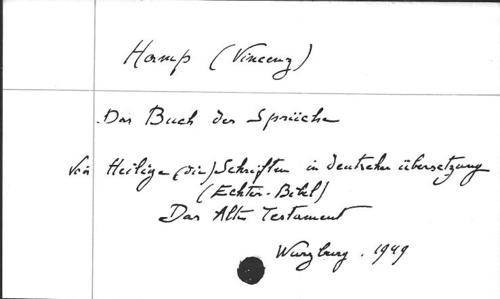 Hamp (Vincenz)
Das Buch der Sprüche
in Heilige (die) Schriften in deutscher übersetzung
(Echter-Bibel)
Das Alte Testament
Wurzburg. 1949